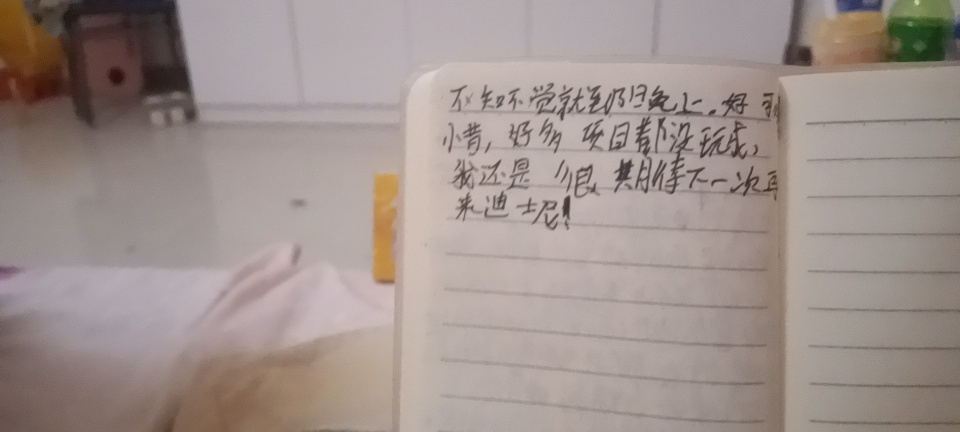 不知不觉就到了晚上。好可
惜，好多项目都没玩成，
我还是很期待下一次再
来迪士尼！